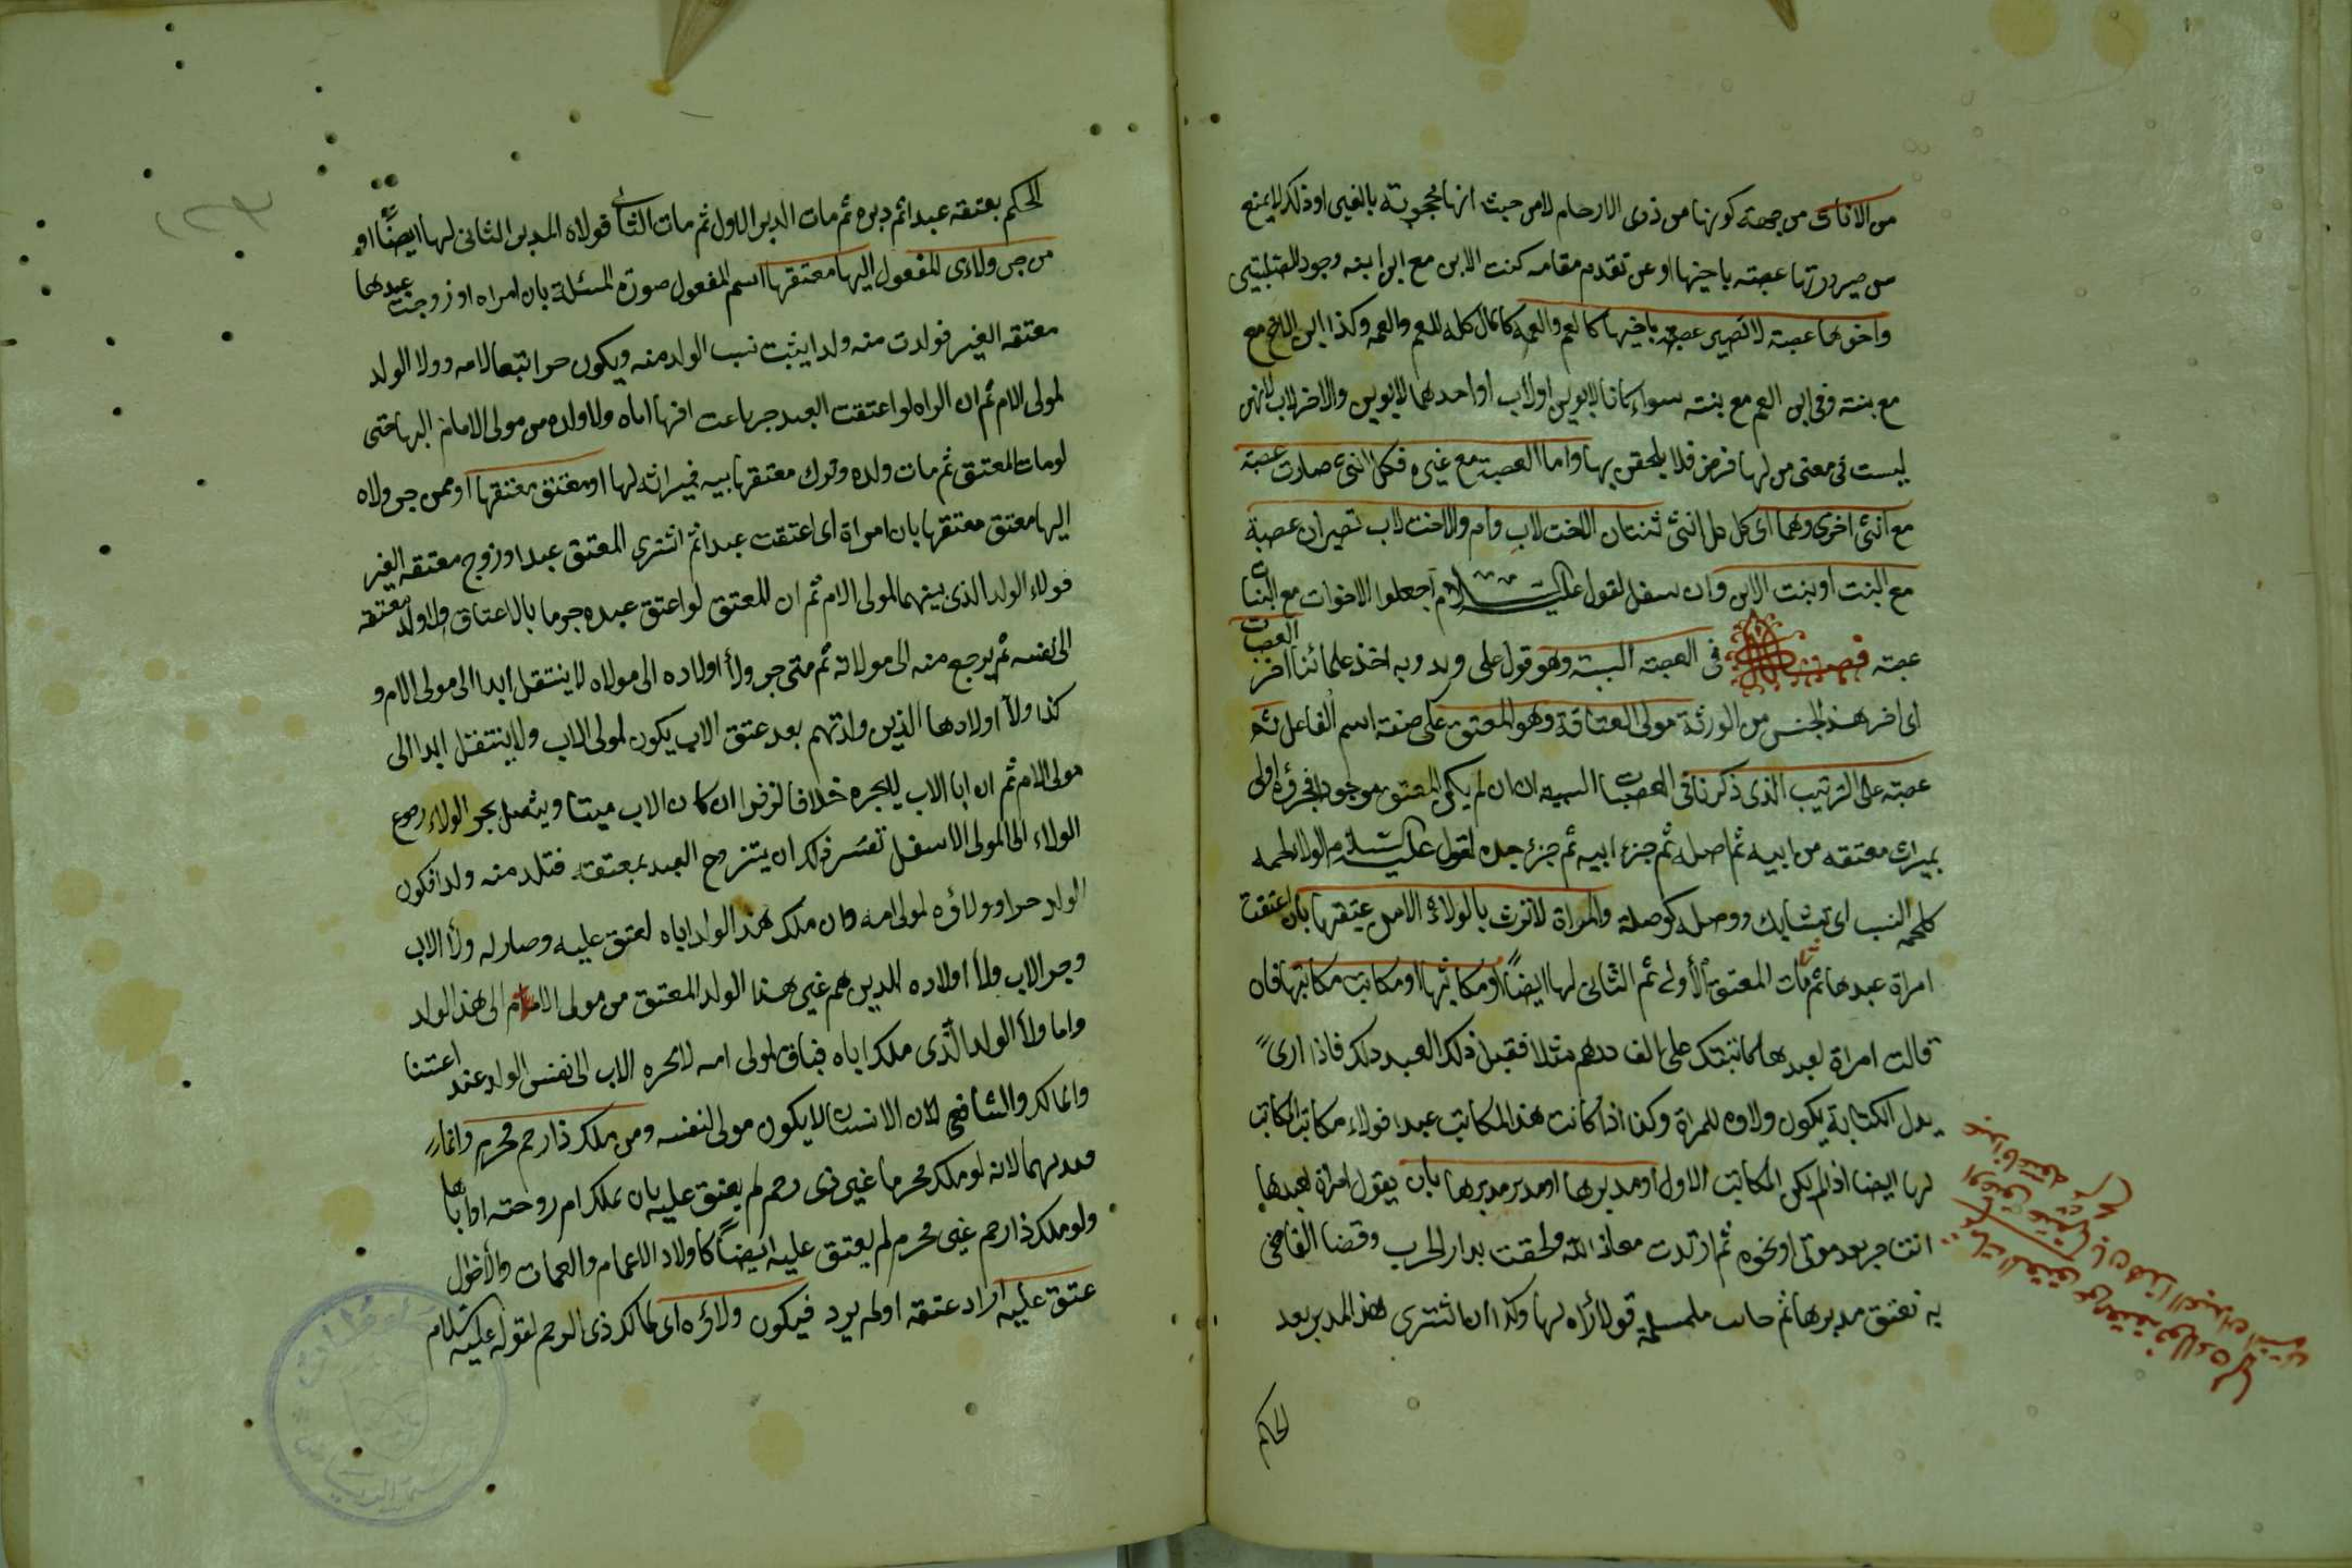 من الاناث من جهة كونها من ذوى الارحام لا من حيث انها محجوبة بالغير اذ ذلك لا يمنع
من صيرورتها عصبته باخيها او عن تقدم مقامه كبنت الابن مع ابن ابنه وجود
واخوهما عصبة لا تصير عصبة باخيها كالعم والعمة كالمال كله للعم والعمه وكذا ابن الاخ مع
مع بنته وفى ابن العم مع بنته سواء كانا لابوين او لاب او احدهما لابوين والاخر لاب لانهن
ليست فى معنى من لها فرض فلا يلحقن بها واما العصبة مع غيره فكل انثى صارت عصبة
مع انثى اخرى وهما اى كل كل انثى ثنتان الاخت لاب وام والاخت لاب تصيران عصبة
مع البنت او بنت الابن وان سفل لقول عليه السلام اجعلوا الاخوات مع البنات
عصبة فصل فى العصبة السببية وهو قول على وزيد وبه اخذ علمائنا اخر العصبات
اى اخر هذا الجنس من الورثة مولى العتاقة وهو المعتق على صفة اسم الفاعل ثم
عصبته على الترتيب الذى ذكرنا فى العصبات النسبية اى ان لم يكن المعتق موجودا فجزؤه اولى
بميراث معتقه من ابيه ثم اصله ثم جزء ابيه ثم جزء جده لقول عليه السلام الولاء لحمه
كلحمة النسب اى تشابك ووصل كوصلة والمراة لا ترث بالولاء الا من عتيقها بان اعتقت
امراة عبدها ثم مات المعتق الأول ثم الثانى لها ايضًا او مكاتبها او مكاتب مكاتبها فان
قالت امراة لعبدها كاتبتك على الف درهم مثلا فقبل ذلك العبد ذلك فاذا ادى
بدل الكتابة يكون ولاوه للمراة وكذا اذا كانت هذا المكاتب عبدا فولاء مكاتب المكاتب
لها ايضا اذا لم يكن المكاتب الاول او مدبرها او مدبر مدبرها بان يقول امراة لعبدها
انت حر بعد موتى او نحوه ثم ارتدت معاذ الله ولحقت بدار الحرب وقضا القاضى
به تعتق مدبرها ثم مسلمة فولاؤه لها وكذا ان اشترى هذا المدبر بعد
الحكم
الحكم بعتقه عبدا ثم دبره ثم مات المدبر الاول ثم مات الثانى فولاه المدبر الثانى لها ايضًا او
من جر ولاءى المفعول اليها معتقها اسم المفعول صورة المسئلة بان امراه او زوجت عبدها
معتقه الغير فولدت منه ولدا يثبت نسب الولد منه ويكون حرا تبعا لامه وولا الولد
لمولى الام ثم ان المراه لو اعتقت العبد جر باعتاقها اياه ولا ولده من مولى الام اليها حتى
لو مات المعتق ثم مات ولده وترك معتقها بيه فميراثه لها او معتق معتقها او ممن جر ولاه
اليها معتق معتقها بان امراة اى اعتقت عبدا ثم اشترى المعتق عبدا وزوج معتقه الغير
فولاء الولد الذى بينهما لمولى الام ثم ان المعتق لو اعتق عبده جر ما بالاعتاق ولا ولد معتقه
الى نفسه ثم يرجع منه الى مولاته ثم متى جر ولاء اولاده الى مولاه لا ينتقل ابدا الى مولى الام و
كذا ولآ اولادها الذين ولدتهم بعد عتق الاب يكون لمولى الاب ولا ينتقل ابدا الى
مولى الام ثم ان ابا الاب لا يجره خلافا لزفر ان كان الاب ميتا ويتصل بجر الولاء رجوع
الولاء الى المولى الاسفل تفسر ذلك ان يتزوج العبد بمعتقة فتلد منه ولدا فيكون
الولد حرا وولاؤه لمولى امه فان ملك هذا الولد اباه لعتق عليه وصار له ولأ الاب
وجر الاب ولأ اولاده الذين هم غير هذا الولد المعتق من مولى الام الى هذا الولد
واما ولأ الولد الذى ملك اباه فباق لمولى امه لا يجره الاب الى نفس الولد عند ائمتنا
والمالك والشافعى لان الانسان لا يكون مولى لنفسه ومن ملك ذا رحم محرم وانما
قيد بهما لانه لو ملك محرما غير ذى رحم لم يعتق عليه بان ملك ام زوجته او اباها
ولو ملك ذا رحم غير محرم لم يعتق عليه ايضاً كاولاد الاعمام والعمات والأخوال
عتق عليه اراد عتقه او لم يرد فيكون ولاؤه اى لمالك ذى الرحم لقوله عليه السلام